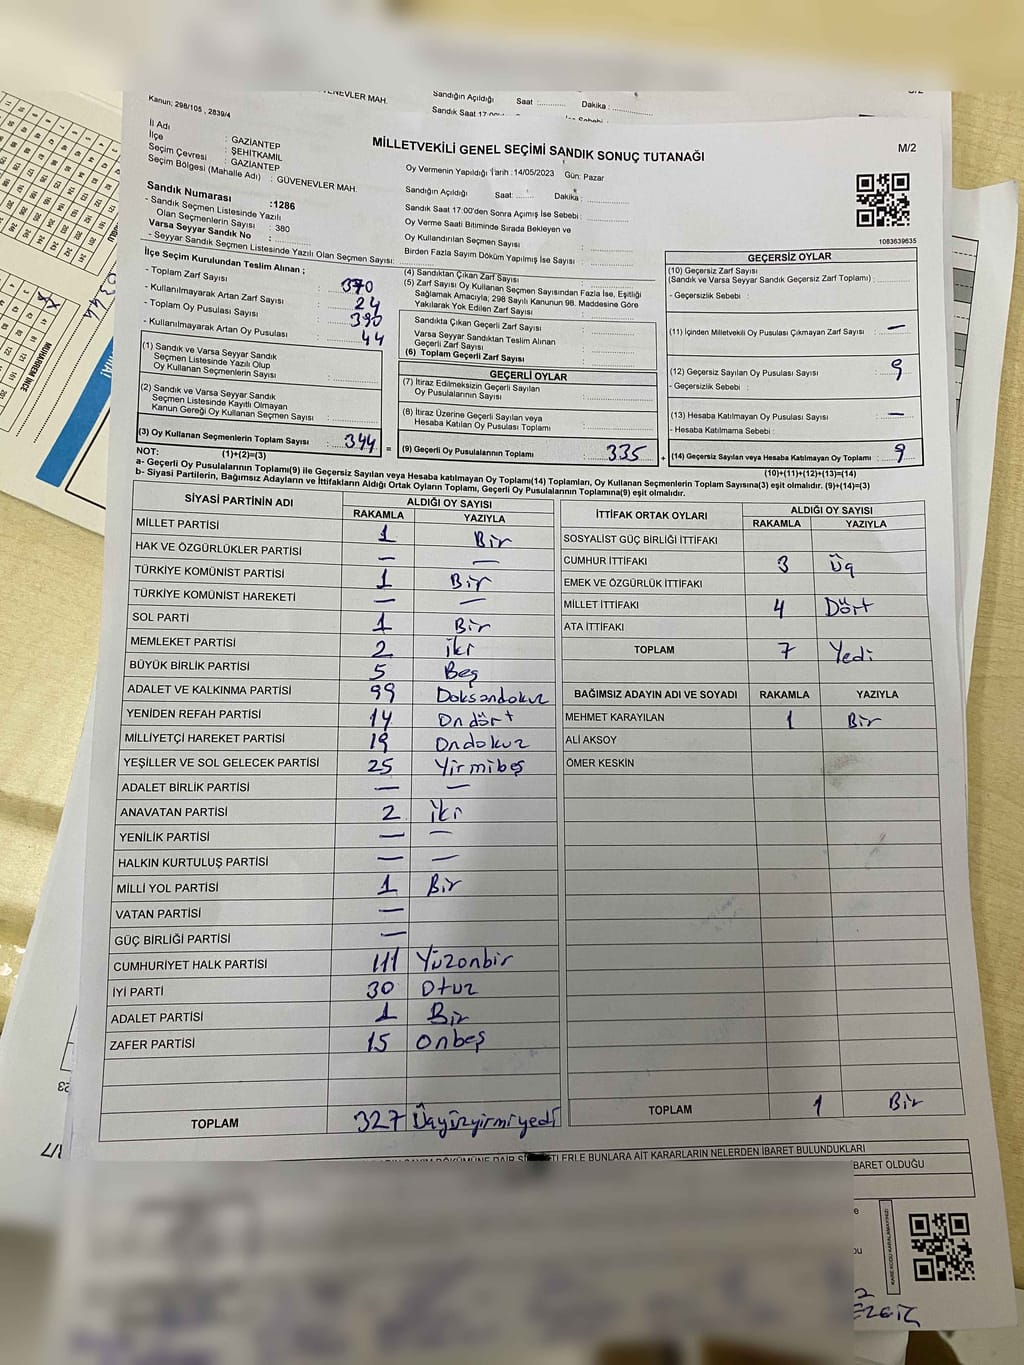 VENEVLER MAH.
Sandığın Açıldığı Saat :........... Dakika : ...............
Kanun; 298/105 , 2839/4
MİLLETVEKİLİ GENEL SEÇİMİ SANDIK SONUÇ TUTANAĞI
M/2
İl Adı : GAZİANTEP
İlçe : ŞEHİTKAMİL
Seçim Çevresi : GAZİANTEP
Seçim Bölgesi (Mahalle Adı) : GÜVENEVLER MAH.
Oy Vermenin Yapıldığı Tarih :14/05/2023 Gün: Pazar
Sandığın Açıldığı Saat: ....... Dakika :
Sandık Saat 17:00'den Sonra Açılmış İse Sebebi :
Oy Verme Saati Bitiminde Sırada Bekleyen ve
Oy Kullandırılan Seçmen Sayısı :
Birden Fazla Sayım Döküm Yapılmış İse Sayısı :
1083639635
Sandık Numarası :1286
- Sandık Seçmen Listesinde Yazılı
Olan Seçmenlerin Sayısı : 380
Varsa Seyyar Sandık No :
- Seyyar Sandık Seçmen Listesinde Yazılı Olan Seçmen Sayısı:
İlçe Seçim Kurulundan Teslim Alınan ;
- Toplam Zarf Sayısı : 370
- Kullanılmayarak Artan Zarf Sayısı : 24
- Toplam Oy Pusulası Sayısı : 390
- Kullanılmayarak Artan Oy Pusulası : 44
(1) Sandık ve Varsa Seyyar Sandık
Seçmen Listesinde Yazılı Olup
Oy Kullanan Seçmenlerin Sayısı :
(2) Sandık ve Varsa Seyyar Sandık
Seçmen Listesinde Kayıtlı Olmayan
Kanun Gereği Oy Kullanan Seçmen Sayısı :
(3) Oy Kullanan Seçmenlerin Toplam Sayısı : 344 =
(1)+(2)=(3)
(4) Sandıktan Çıkan Zarf Sayısı :
(5) Zarf Sayısı Oy Kullanan Seçmen Sayısından Fazla İse, Eşitliği
Sağlamak Amacıyla; 298 Sayılı Kanunun 98. Maddesine Göre
Yakılarak Yok Edilen Zarf Sayısı :
Sandıkta Çıkan Geçerli Zarf Sayısı :
Varsa Seyyar Sandıktan Teslim Alınan
Geçerli Zarf Sayısı :
(6) Toplam Geçerli Zarf Sayısı :
GEÇERLİ OYLAR
(7) İtiraz Edilmeksizin Geçerli Sayılan
Oy Pusulalarının Sayısı :
(8) İtiraz Üzerine Geçerli Sayılan veya
Hesaba Katılan Oy Pusulası Toplamı :
(9) Geçerli Oy Pusulalarının Toplamı : 335 +
GEÇERSİZ OYLAR
(10) Geçersiz Zarf Sayısı
(Sandık ve Varsa Seyyar Sandık Geçersiz Zarf Toplamı) :
- Geçersizlik Sebebi :
(11) İçinden Milletvekili Oy Pusulası Çıkmayan Zarf Sayısı : —
(12) Geçersiz Sayılan Oy Pusulası Sayısı : 9
- Geçersizlik Sebebi :
(13) Hesaba Katılmayan Oy Pusulası Sayısı : —
- Hesaba Katılmama Sebebi :
(14) Geçersiz Sayılan veya Hesaba Katılmayan Oy Toplamı : 9
(10)+(11)+(12)+(13)=(14)
NOT:
a- Geçerli Oy Pusulalarının Toplamı(9) ile Geçersiz Sayılan veya Hesaba katılmayan Oy Toplamı(14) Toplamları, Oy Kullanan Seçmenlerin Toplam Sayısına(3) eşit olmalıdır. (9)+(14)=(3)
b- Siyasi Partilerin, Bağımsız Adayların ve İttifakların Aldığı Ortak Oyların Toplamı, Geçerli Oy Pusulalarının Toplamına(9) eşit olmalıdır.
SİYASİ PARTİNİN ADI ALDIĞI OY SAYISI
RAKAMLA YAZIYLA
MİLLET PARTİSİ 1 Bir
HAK VE ÖZGÜRLÜKLER PARTİSİ — —
TÜRKİYE KOMÜNİST PARTİSİ 1 Bir
TÜRKİYE KOMÜNİST HAREKETİ — —
SOL PARTİ 1 Bir
MEMLEKET PARTİSİ 2 iki
BÜYÜK BİRLİK PARTİSİ 5 Beş
ADALET VE KALKINMA PARTİSİ 99 Doksandokuz
YENİDEN REFAH PARTİSİ 14 Ondört
MİLLİYETÇİ HAREKET PARTİSİ 19 Ondokuz
YEŞİLLER VE SOL GELECEK PARTİSİ 25 Yirmibeş
ADALET BİRLİK PARTİSİ — —
ANAVATAN PARTİSİ 2 iki
YENİLİK PARTİSİ — —
HALKIN KURTULUŞ PARTİSİ — —
MİLLİ YOL PARTİSİ 1 Bir
VATAN PARTİSİ —
GÜÇ BİRLİĞİ PARTİSİ —
CUMHURİYET HALK PARTİSİ 111 Yüzonbir
İYİ PARTİ 30 Otuz
ADALET PARTİSİ 1 Bir
ZAFER PARTİSİ 15 onbeş
TOPLAM 327 Üçyüzyirmiyedi
İTTİFAK ORTAK OYLARI ALDIĞI OY SAYISI
RAKAMLA YAZIYLA
SOSYALİST GÜÇ BİRLİĞİ İTTİFAKI
CUMHUR İTTİFAKI 3 Üç
EMEK VE ÖZGÜRLÜK İTTİFAKI
MİLLET İTTİFAKI 4 Dört
ATA İTTİFAKI
TOPLAM 7 Yedi
BAĞIMSIZ ADAYIN ADI VE SOYADI RAKAMLA YAZIYLA
MEHMET KARAYILAN 1 Bir
ALİ AKSOY
ÖMER KESKİN
TOPLAM 1 Bir
ERLE BUNLARA AİT KARARLARIN NELERDEN İBARET BULUNDUKLARI
BARET OLDUĞU
MUHARREM İNCE